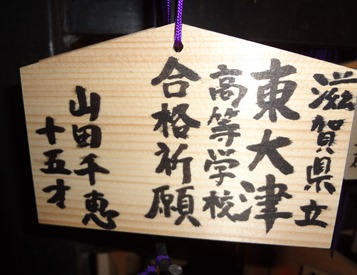 滋賀県立
東大津
高等学校
合格祈願
山田千恵
十五才